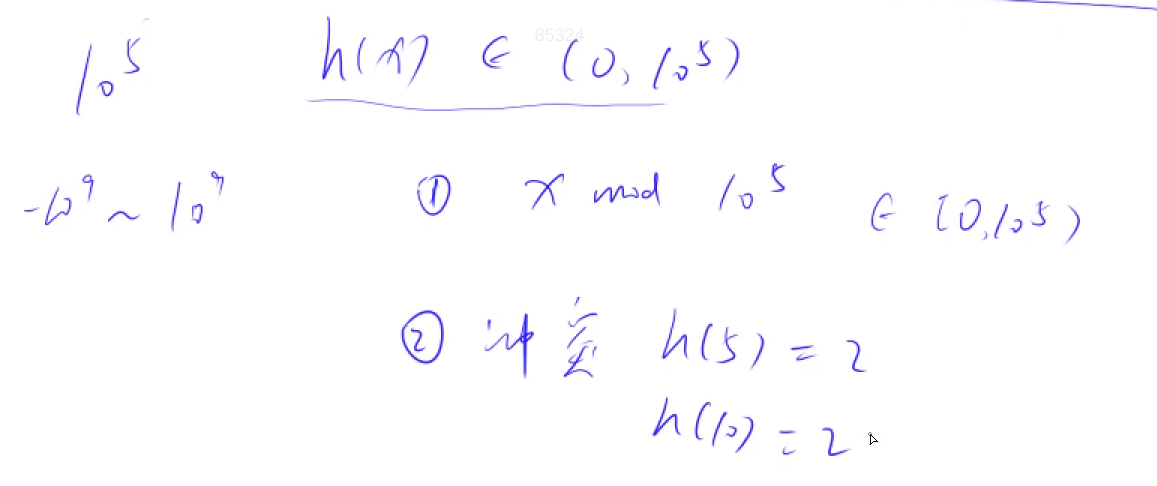 10⁵ h(x) ∈ (0, 10⁵)
85324
-10⁹ ~ 10⁹ ① x mod 10⁵ ∈ [0, 10⁵)
② 冲突 h(5) = 2
h(10) = 2